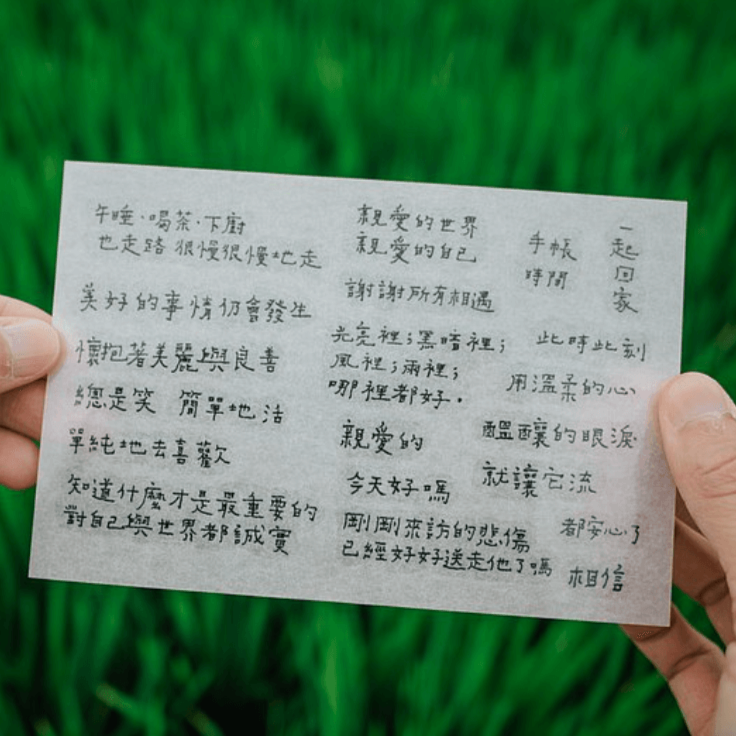 午睡·喝茶·下廚
也走路 很慢很慢地走
美好的事情仍會發生
懷抱著美麗與良善
總是笑 簡單地活
單純地去喜歡
知道什麼才是最重要的
對自己與世界都誠實
親愛的世界
親愛的自己
謝謝所有相遇
光亮裡;黑暗裡;
風裡;雨裡;
哪裡都好.
親愛的
今天好嗎
剛剛來訪的悲傷
已經好好送走他了嗎
手帳
時間
一起回家
此時此刻
用溫柔的心
醞釀的眼淚
就讓它流
都安心了
相信